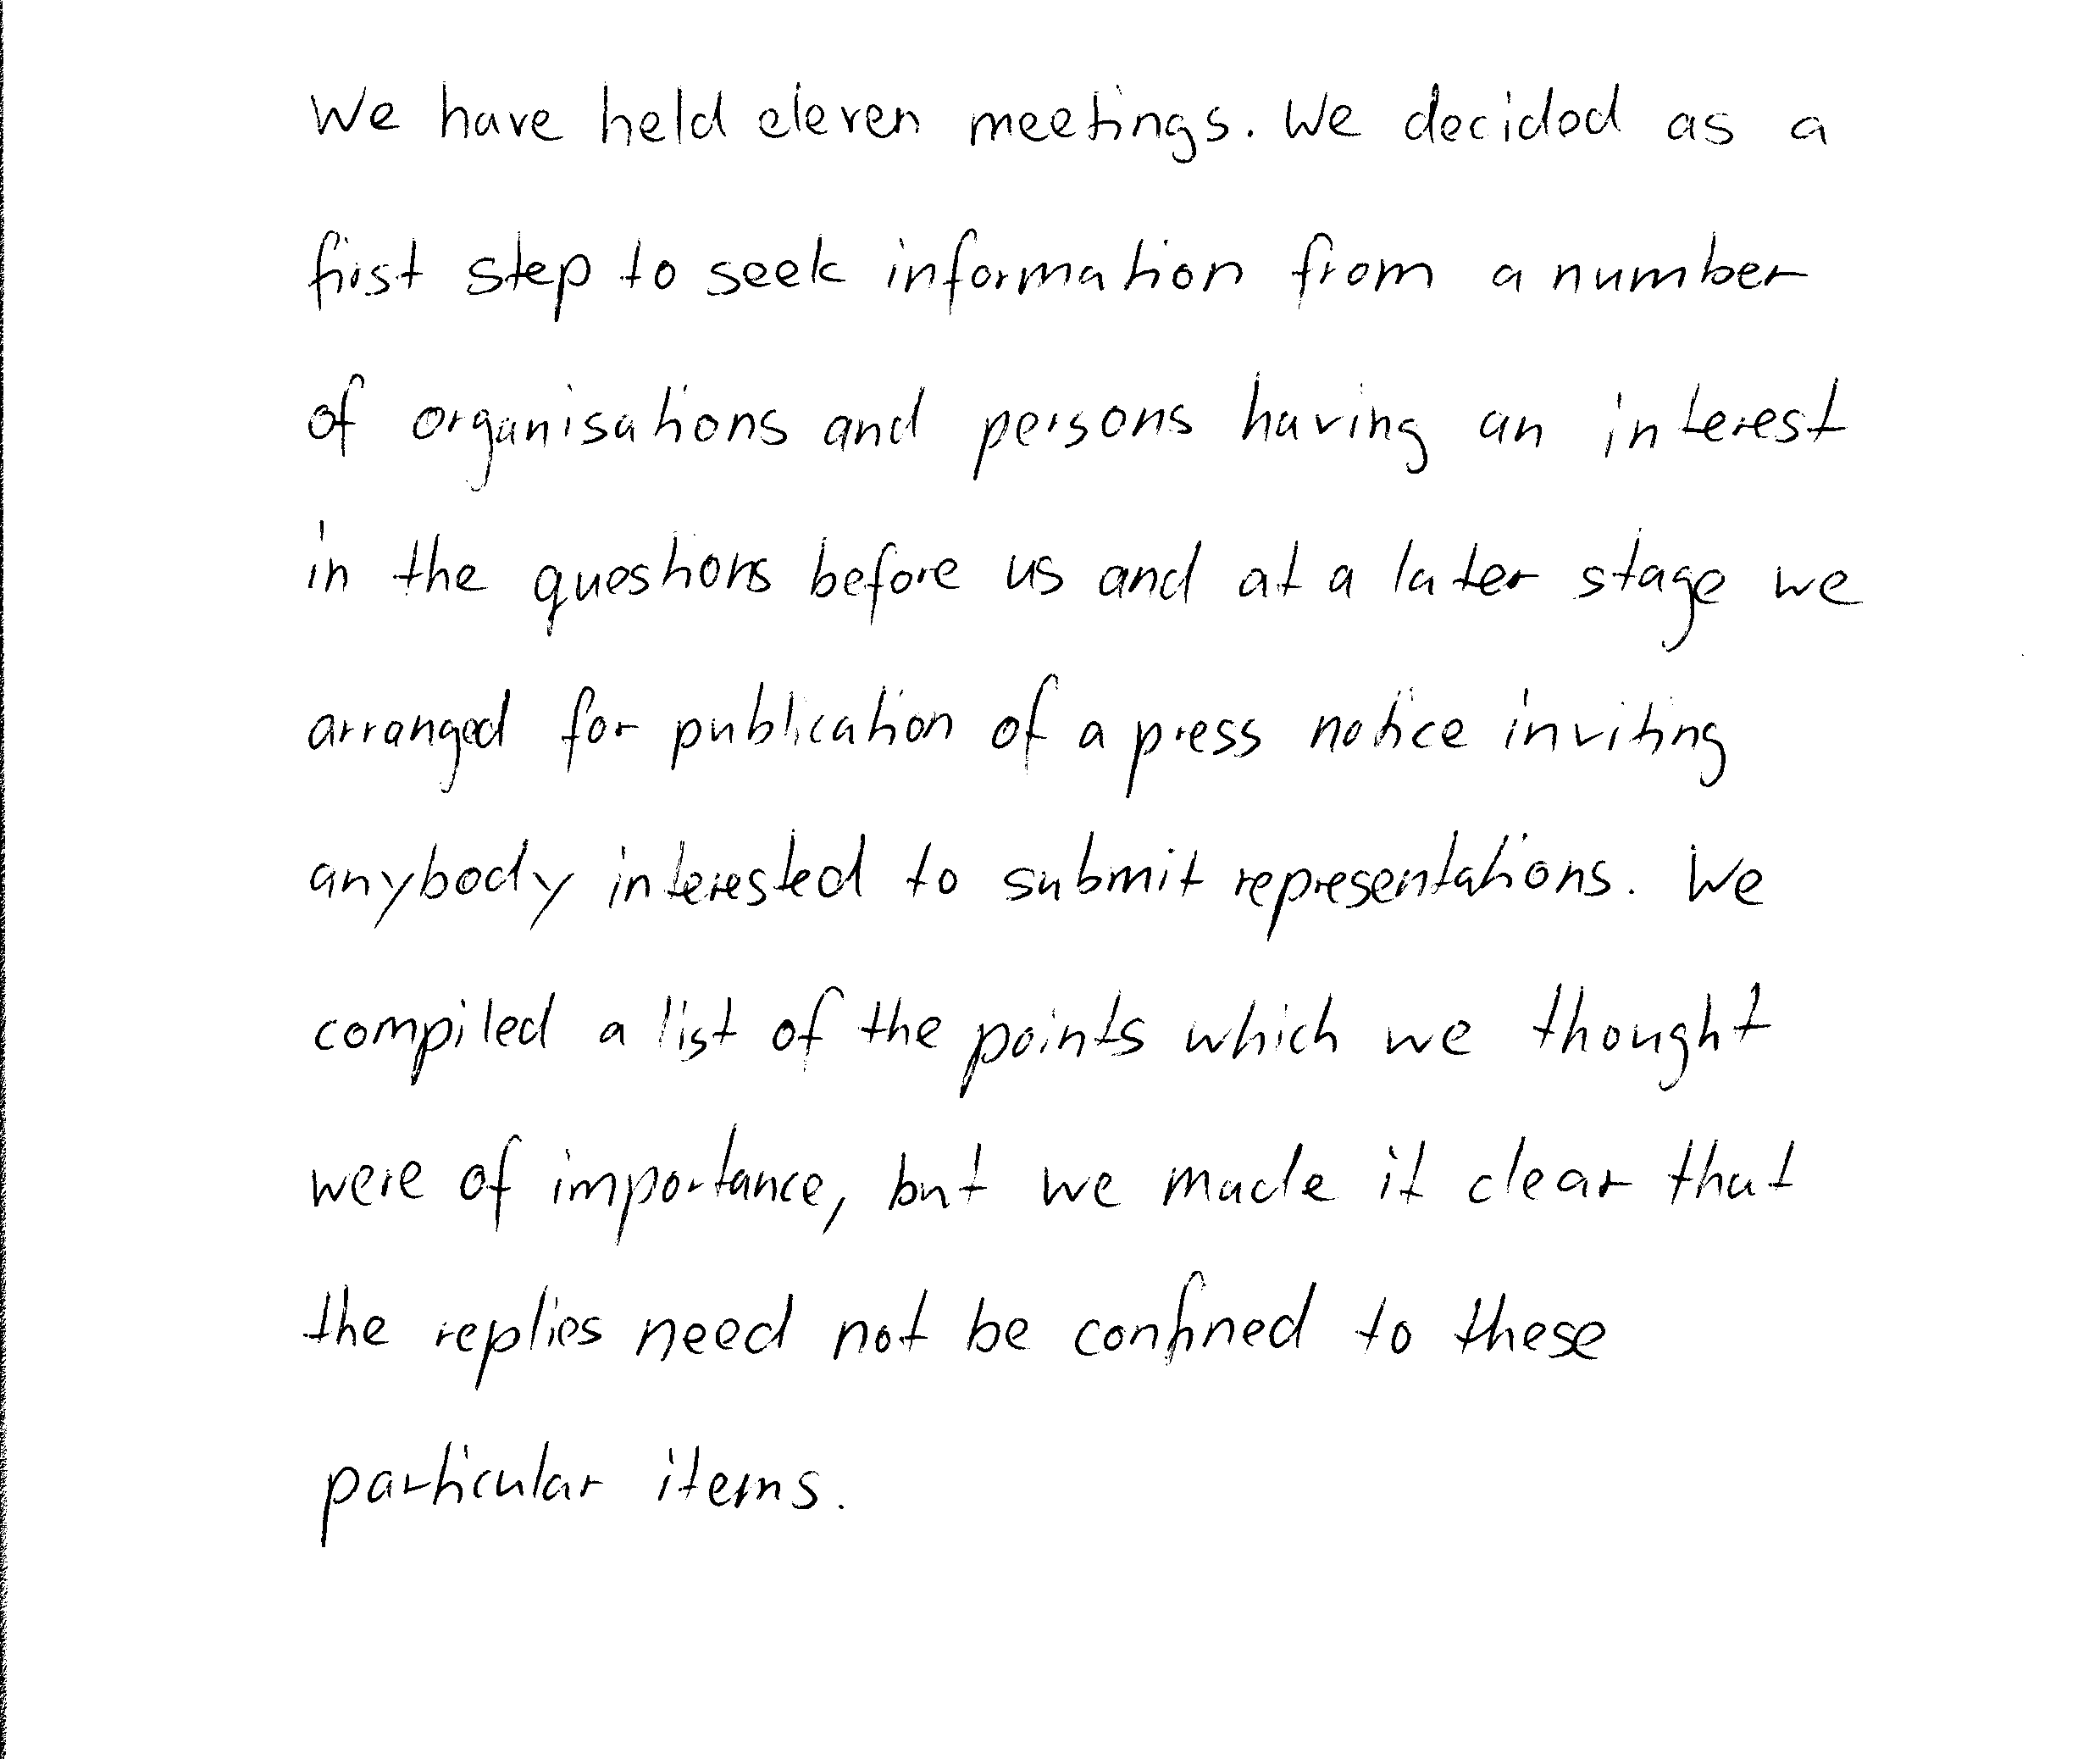 We have held eleven meetings. We decided as a
first step to seek information from a number
of organisations and persons having an interest
in the questions before us and at a later stage we
arranged for publication of a press notice inviting
anybody interested to submit representations. We
compiled a list of the points which we thought
were of importance, but we made it clear that
the replies need not be confined to these
particular items.